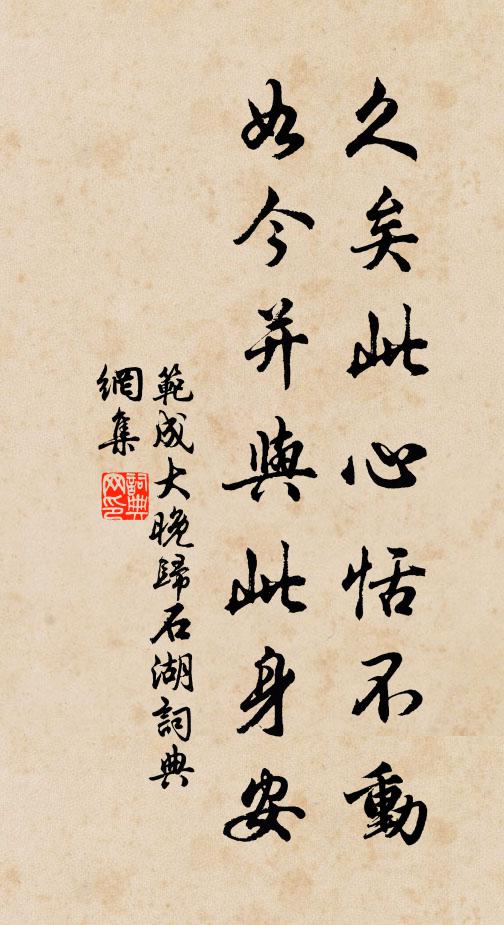 久矣此心恬不動
如今并與此身安
範成大晚歸石湖詞典
網集
詞典
网印